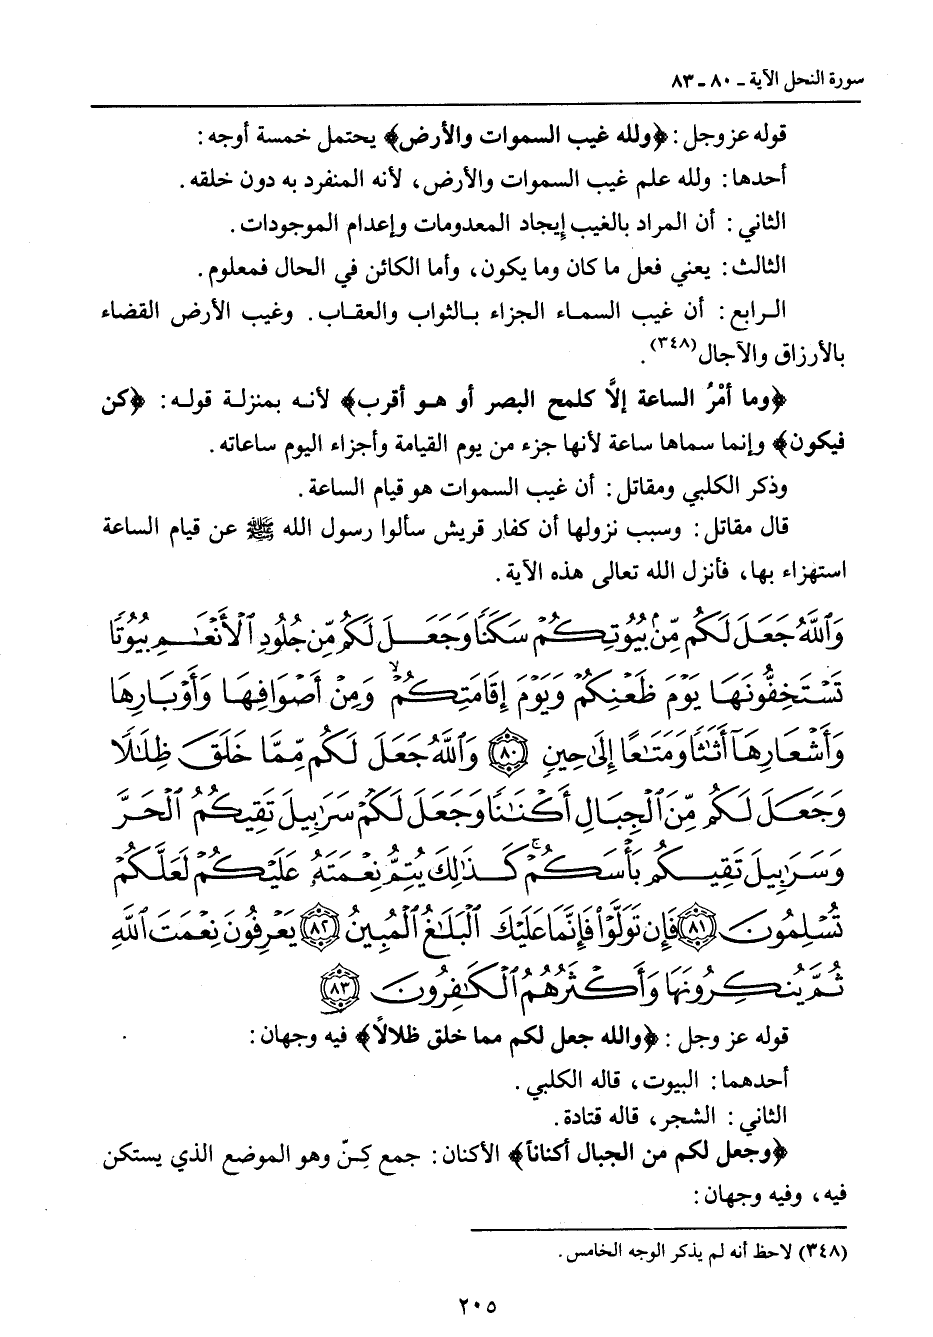 سورة النحل الآية ـ ٨٠ ـ ٨٣
قوله عز وجل : ﴿ولله غيب السموات والأرض﴾ يحتمل خمسة أوجه :
أحدها : ولله علم غيب السموات والأرض، لأنه المنفرد به دون خلقه .
الثاني : أن المراد بالغيب إيجاد المعدومات وإعدام الموجودات .
الثالث : يعني فعل ما كان وما يكون، وأما الكائن في الحال فمعلوم .
الرابع : أن غيب السماء الجزاء بالثواب والعقاب . وغيب الأرض القضاء
بالأرزاق والآجال(٣٤٨) .
﴿وما أمْرُ الساعة إلَّا كلمح البصر أو هو أقرب﴾ لأنه بمنزلة قوله : ﴿كن
فيكون﴾ وإنما سماها ساعة لأنها جزء من يوم القيامة وأجزاء اليوم ساعاته .
وذكر الكلبي ومقاتل : أن غيب السموات هو قيام الساعة .
قال مقاتل : وسبب نزولها أن كفار قريش سألوا رسول الله ﷺ عن قيام الساعة
استهزاء بها، فأنزل الله تعالى هذه الآية .
وَٱللَّهُ جَعَلَ لَكُم مِّنۢ بُيُوتِكُمْ سَكَنًا وَجَعَلَ لَكُم مِّن جُلُودِ ٱلْأَنْعَٰمِ بُيُوتًا
تَسْتَخِفُّونَهَا يَوْمَ ظَعْنِكُمْ وَيَوْمَ إِقَامَتِكُمْ ۙ وَمِنْ أَصْوَافِهَا وَأَوْبَارِهَا
وَأَشْعَارِهَآ أَثَٰثًا وَمَتَٰعًا إِلَىٰ حِينٍ ﴿٨٠﴾ وَٱللَّهُ جَعَلَ لَكُم مِّمَّا خَلَقَ ظِلَٰلًا
وَجَعَلَ لَكُم مِّنَ ٱلْجِبَالِ أَكْنَٰنًا وَجَعَلَ لَكُمْ سَرَٰبِيلَ تَقِيكُمُ ٱلْحَرَّ
وَسَرَٰبِيلَ تَقِيكُم بَأْسَكُمْ ۚ كَذَٰلِكَ يُتِمُّ نِعْمَتَهُۥ عَلَيْكُمْ لَعَلَّكُمْ
تُسْلِمُونَ ﴿٨١﴾ فَإِن تَوَلَّوْا۟ فَإِنَّمَا عَلَيْكَ ٱلْبَلَٰغُ ٱلْمُبِينُ ﴿٨٢﴾ يَعْرِفُونَ نِعْمَتَ ٱللَّهِ
ثُمَّ يُنكِرُونَهَا وَأَكْثَرُهُمُ ٱلْكَٰفِرُونَ ﴿٨٣﴾
قوله عز وجل : ﴿والله جعل لكم مما خلق ظلالاً﴾ فيه وجهان :
أحدهما : البيوت، قاله الكلبي .
الثاني : الشجر، قاله قتادة .
﴿وجعل لكم من الجبال أكناناً﴾ الأكنان : جمع كِنّ وهو الموضع الذي يستكن
فيه، وفيه وجهان :
(٣٤٨) لاحظ أنه لم يذكر الوجه الخامس .
٢٠٥